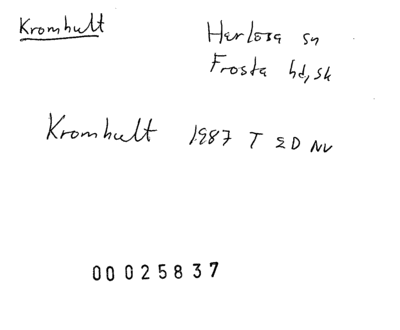 Kromhult
Hurlösa sn
Frosta hd, sk
Kromhult 1987 T ED NV
00025837